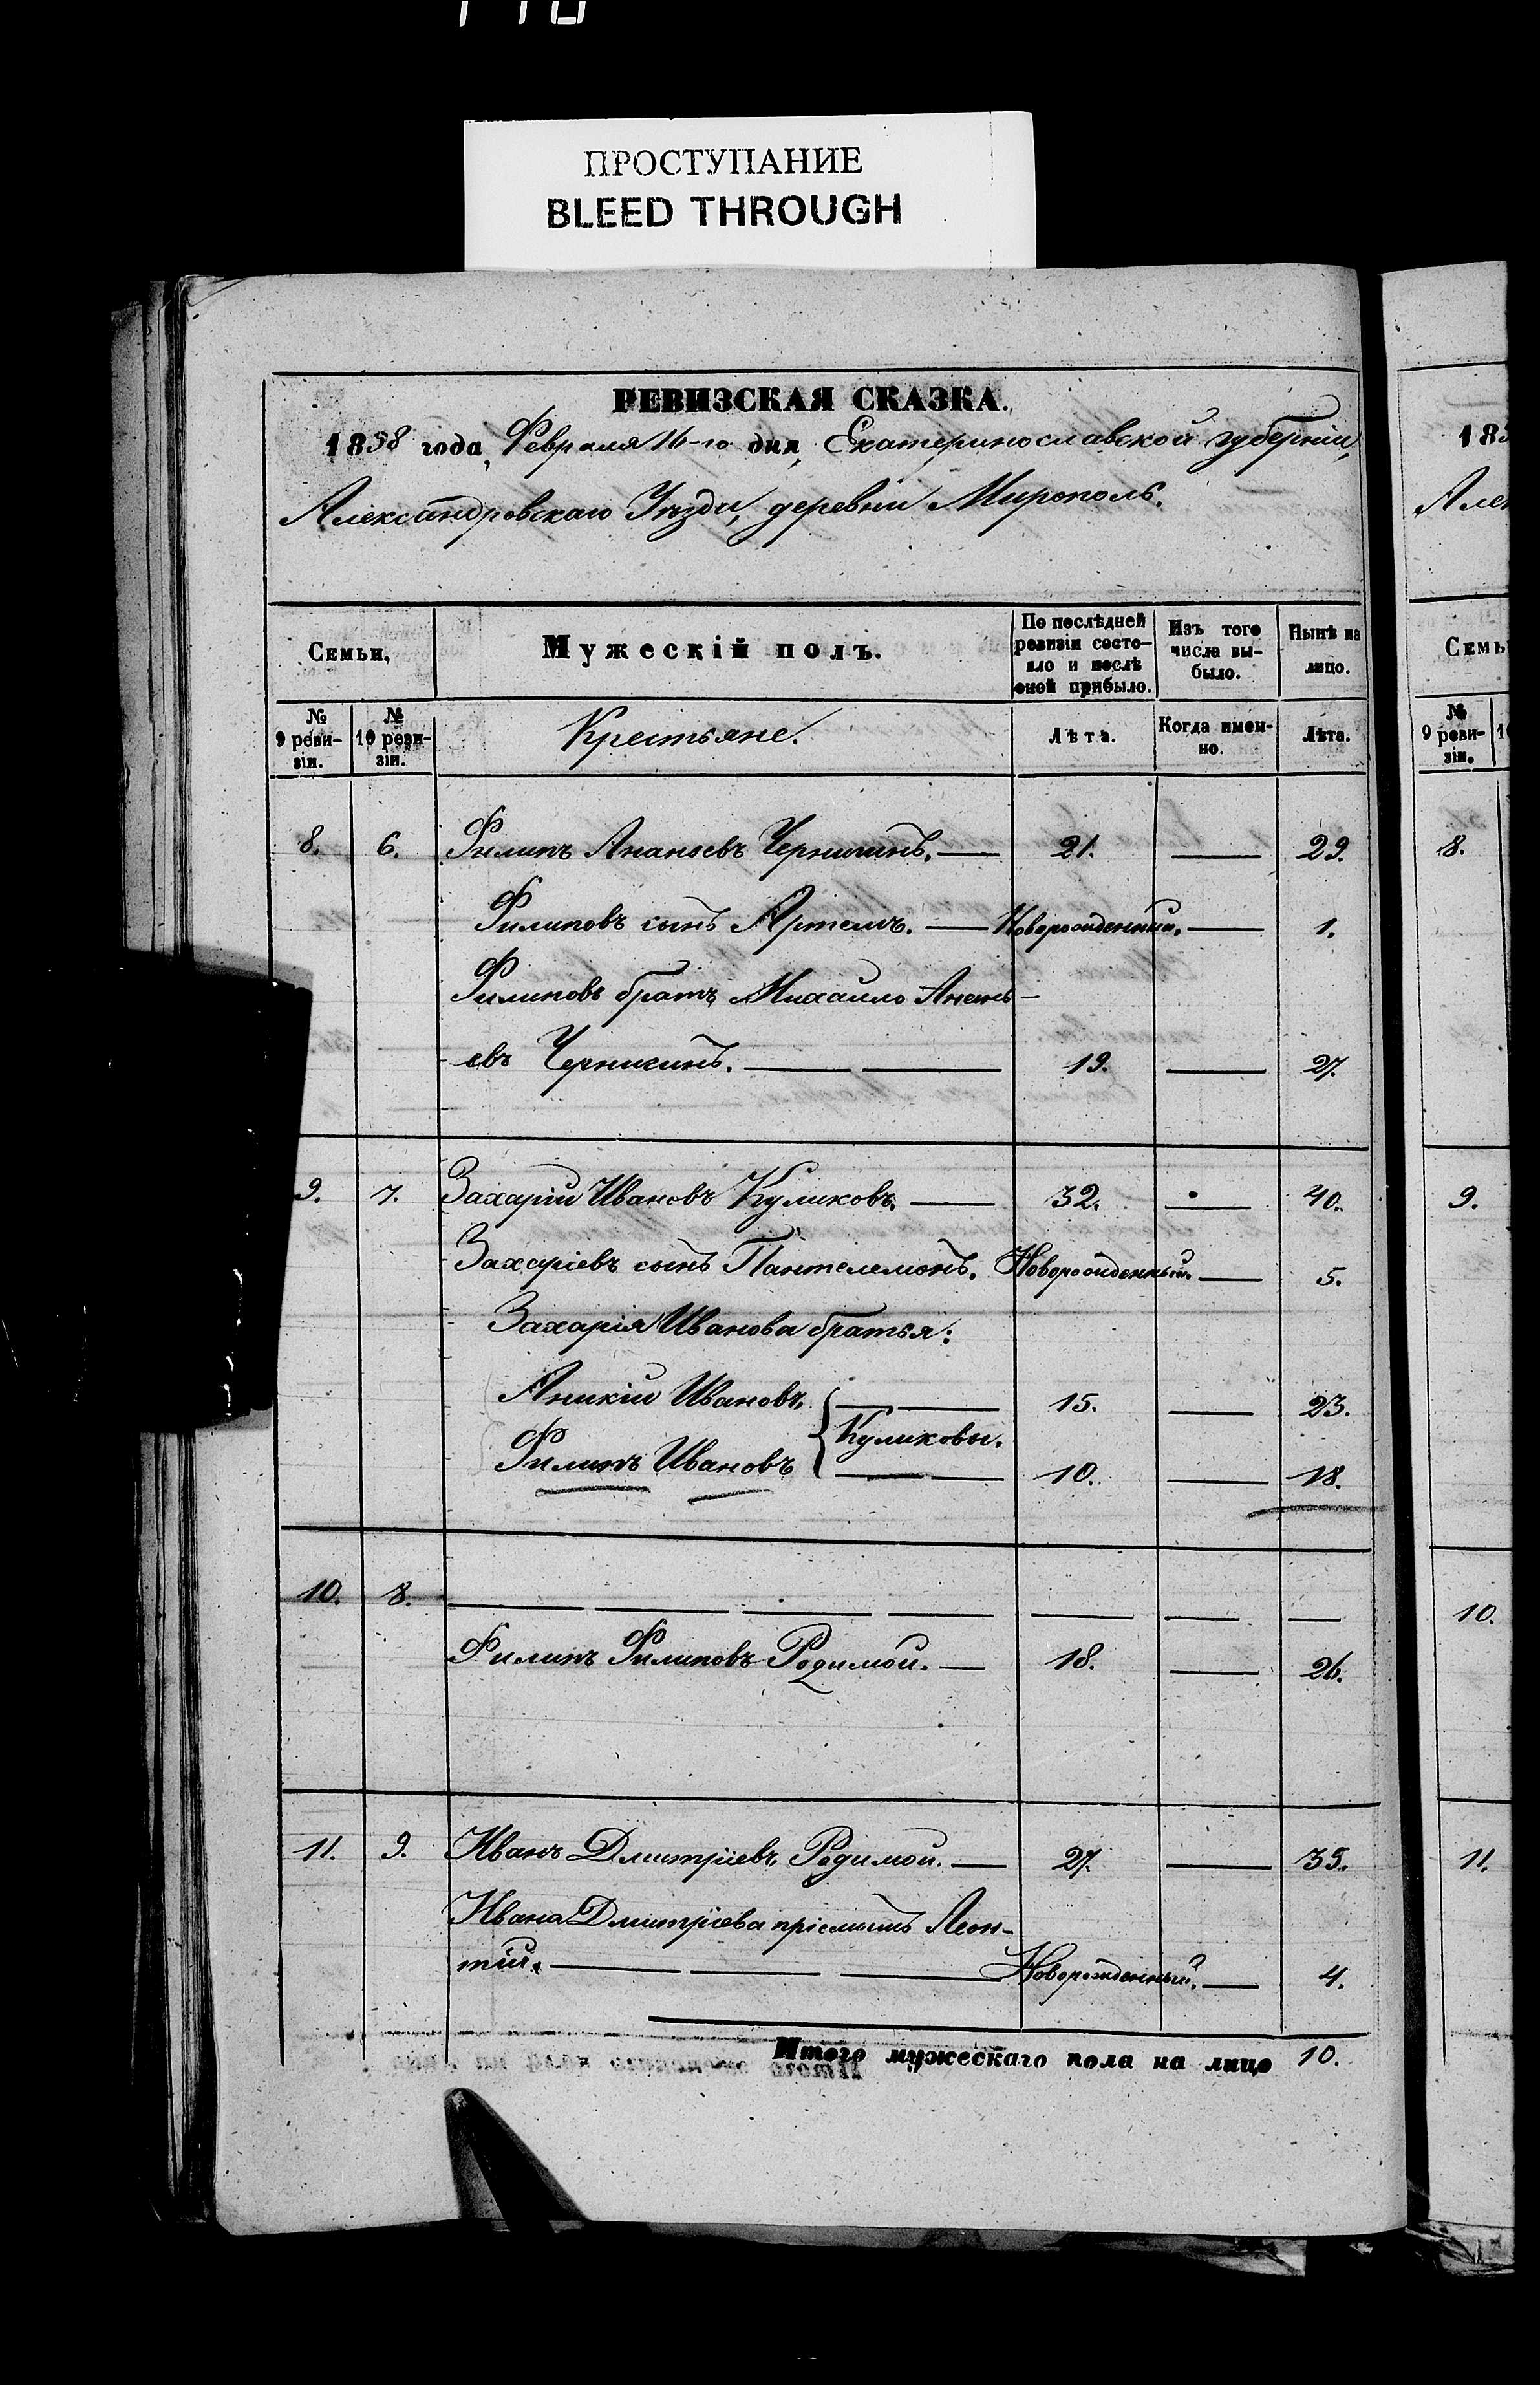 ПРОСТУПАНИЕ
BLEED THROUGH
РЕВИЗСКАЯ СКАЗКА.
1858 года, Февраля 16-го дня, Екатеринославской губерніи,
Александровскаго Уѣзда, деревни Мирополь.
Семьи,
Мужескій полъ.
По послѣдней ревизіи состо-
яло и послѣ
оной прибыло.
Изъ того
числа вы-
было.
Нынѣ на
лицо.
№
9 реви-
зіи.
№
10 реви-
зіи.
Крестьяне.
Лѣта.
Когда имен-
но.
Лѣта.
8. 6. Филипъ Ананьевъ 21. — 29.
Филиповъ сынъ Артемъ. — Новорожденный. — 1.
Филиповъ братъ Михайло Анань-
евъ 19. — 27.
9. 7. Захарій Ивановъ Куликовъ. — 32. — 40.
Захаріевъ сынъ Пантелемонъ. Новорожденный. — 5.
Захарія Иванова братья:
Аникій Ивановъ — 15. — 23.
Куликовы.
Филипъ Ивановъ — 10. — 18.
10. 8. — — — — — — —
Филипъ Филиповъ Родимой. — 18. — 26.
11. 9. Иванъ Дмитріевъ Родимой. — 27. — 35.
Ивана Дмитріева пріемышъ Леон-
тій. — — — Новорожденный. — 4.
Итого мужескаго пола на лицо 10.
185
Але
Семь
№
9 реви-
зіи.
8.
9.
10.
11.